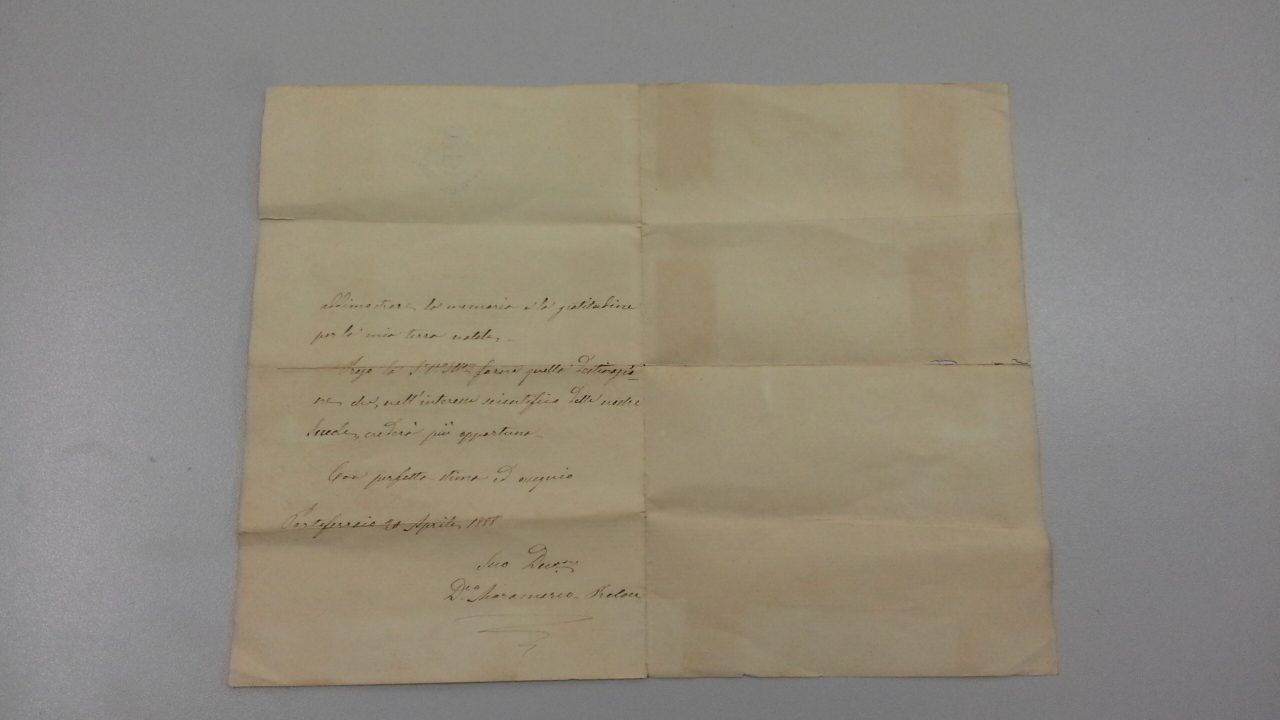 addimostrare la memoria e la gratitudine
per la mia terra natale.
Prego la S. V. Ill.ma farne quella destinazio=
ne, che, nell'interesse scientifico delle nostre
Scuole, crederà più opportuna.
Con perfetta stima ed ossequio
Portoferraio 20 Aprile, 1888
Suo Dev.mo